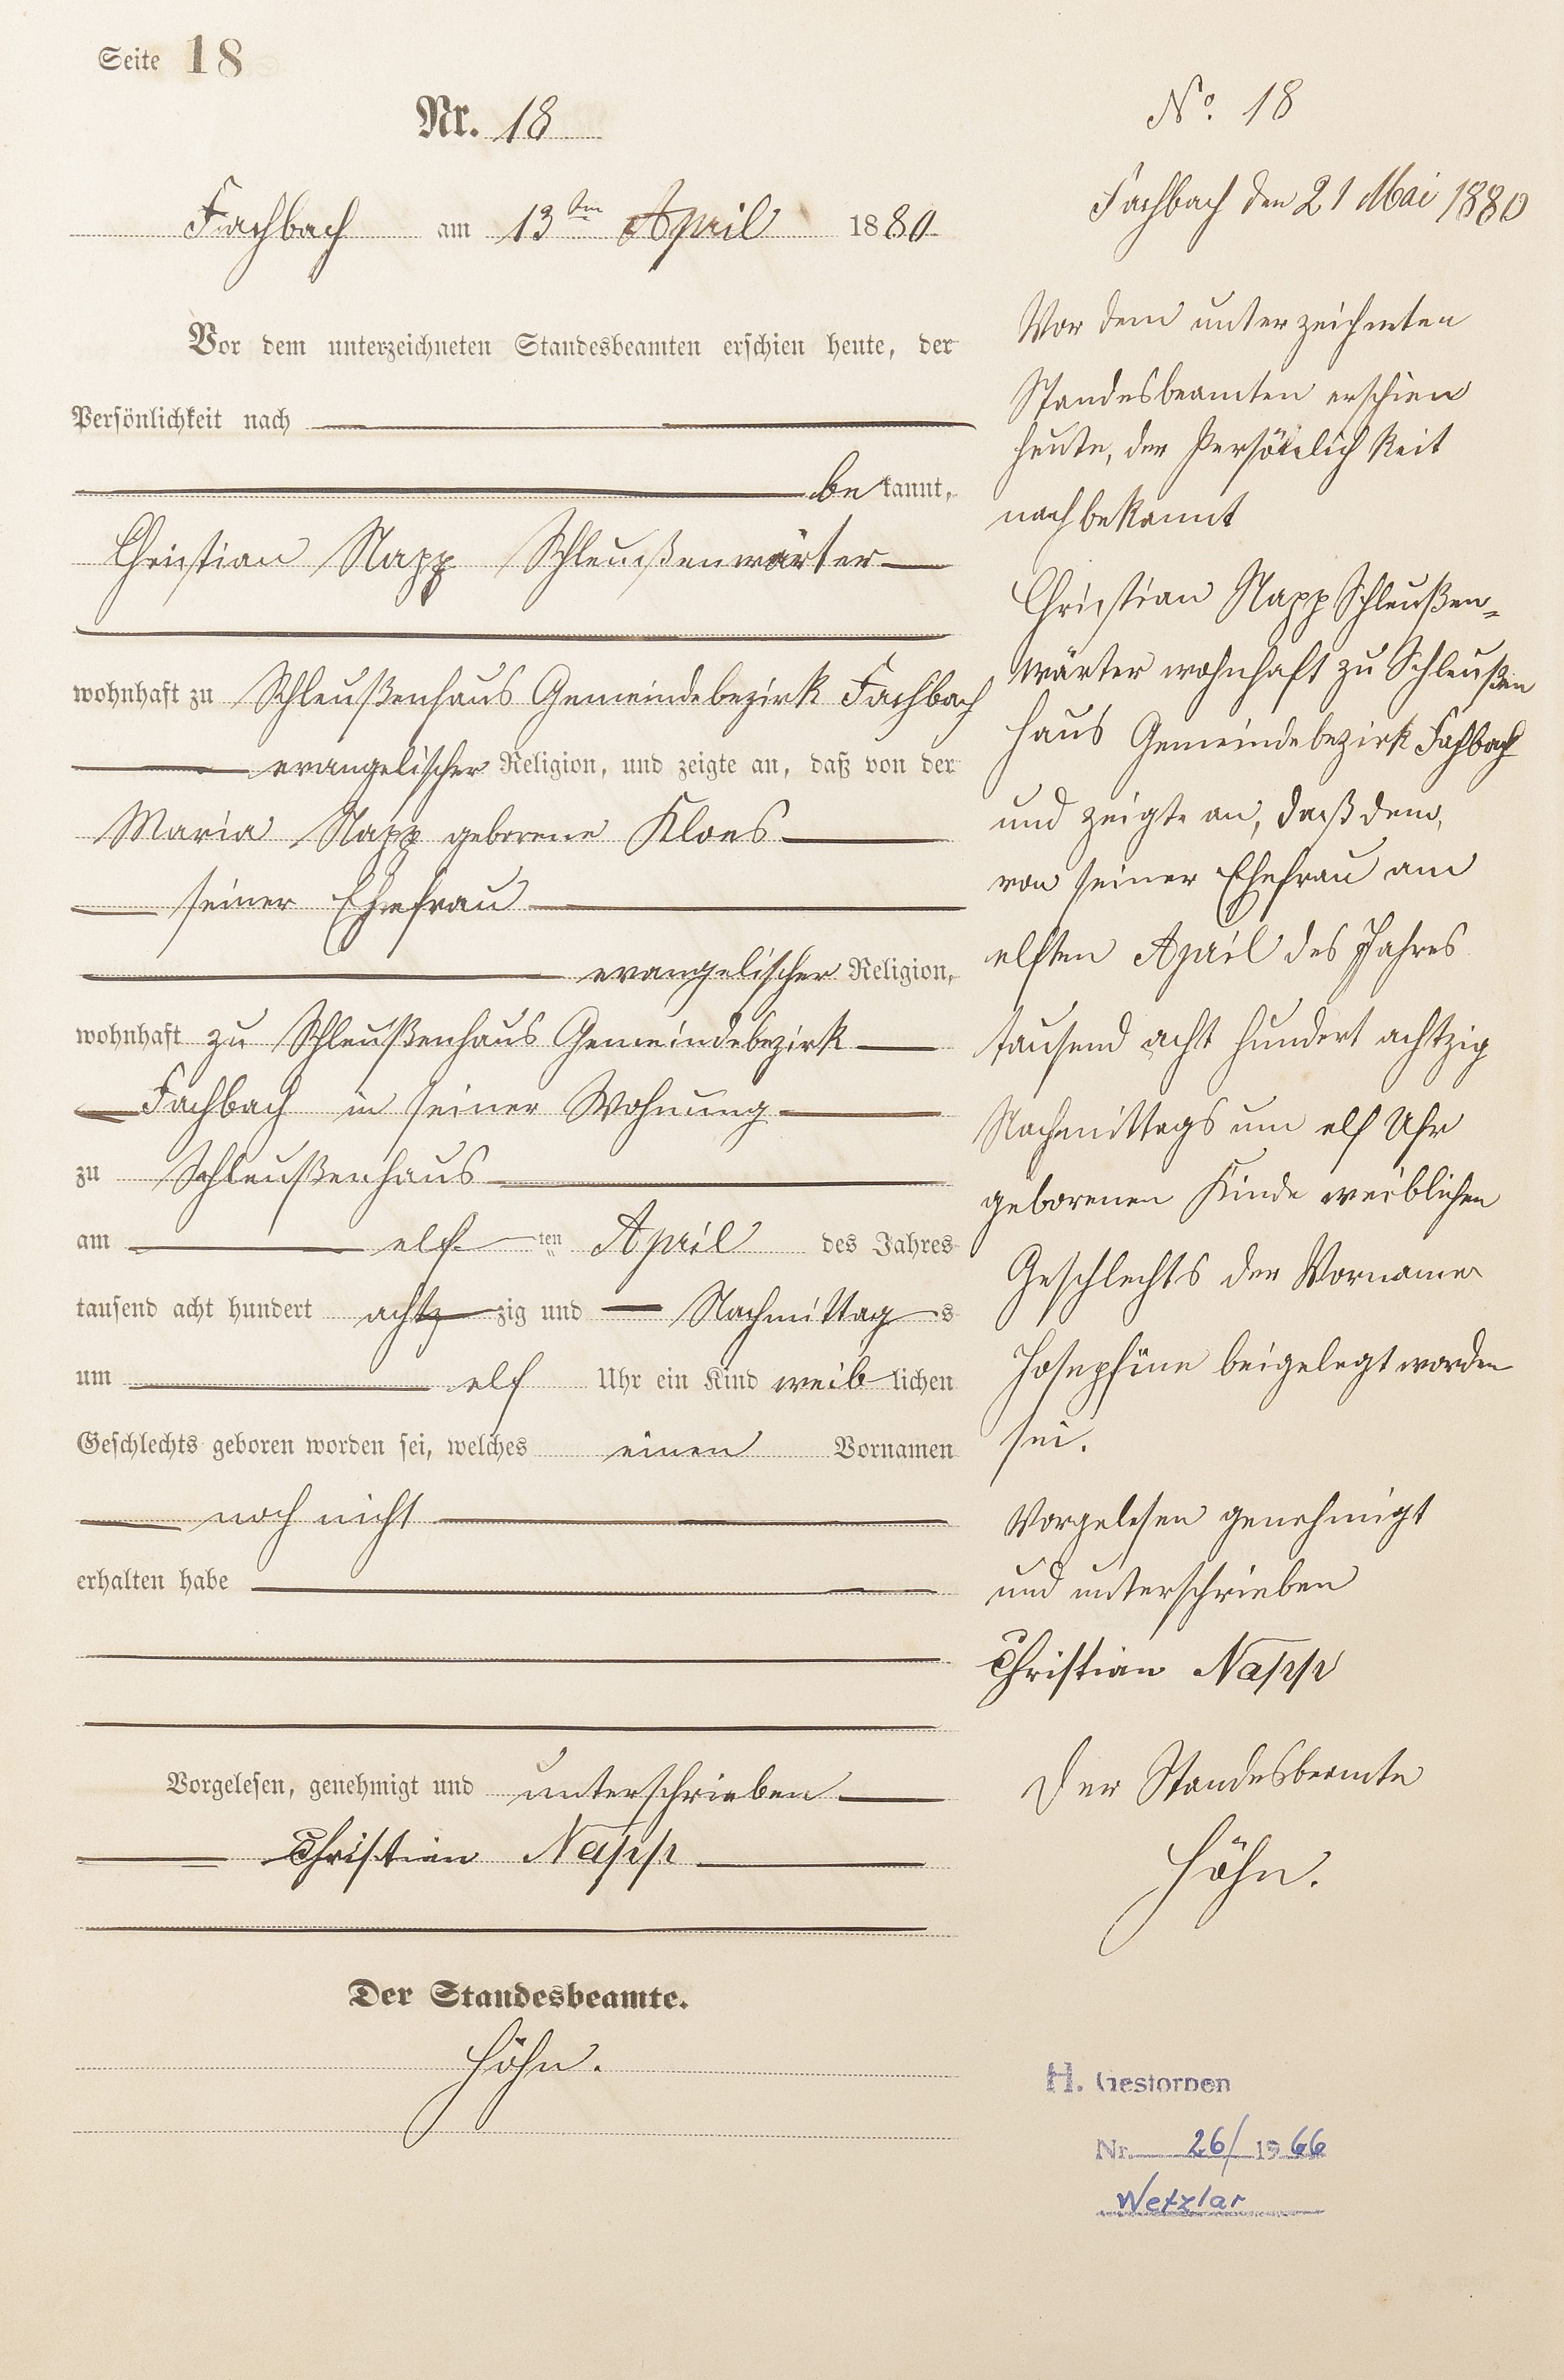 Seite 18
Nr. 18
Fachbach am 13ten April 1880
Vor dem unterzeichneten Standesbeamten erschien heute, der
Persönlichkeit nach
be kannt,
Christian Napp Schleußenwärter
wohnhaft zu Schleußenhaus Gemeindebezirk Fachbach
evangelischer Religion, und zeigte an, daß von der
Maria Napp geborene Kloes
seiner Ehefrau
evangelischer Religion,
wohnhaft zu Schleußenhaus Gemeindebezirk
Fachbach in seiner Wohnung
zu Schleußenhaus
am elf ten April des Jahres
tausend acht hundert achtzig und Nachmittags
um elf Uhr ein Kind weiblichen
Geschlechts geboren worden sei, welches einen Vornamen
noch nicht
erhalten habe
Vorgelesen, genehmigt und unterschrieben
Christian Napp
Der Standesbeamte.
Höhn.
No. 18
Fachbach den 21 Mai 1880
Vor dem unterzeichneten
Standesbeamten erschien
heute, der Persönlichkeit
nach bekannt
Christian Napp Schleußen=
wärter wohnhaft zu Schleußen
haus Gemeindebezirk Fachbach
und zeigte an, daß dem,
von seiner Ehefrau am
elften April des Jahres
tausend acht hundert achtzig
Nachmittags um elf Uhr
geborenen Kinde weiblichen
Geschlechts der Vorname
Josephine beigelegt worden
sei.
Vorgelesen genehmigt
und unterschrieben
Christian Napp
Der Standesbeamte
Höhn.
H. Gestorben
Nr. 26/1966
Wetzlar